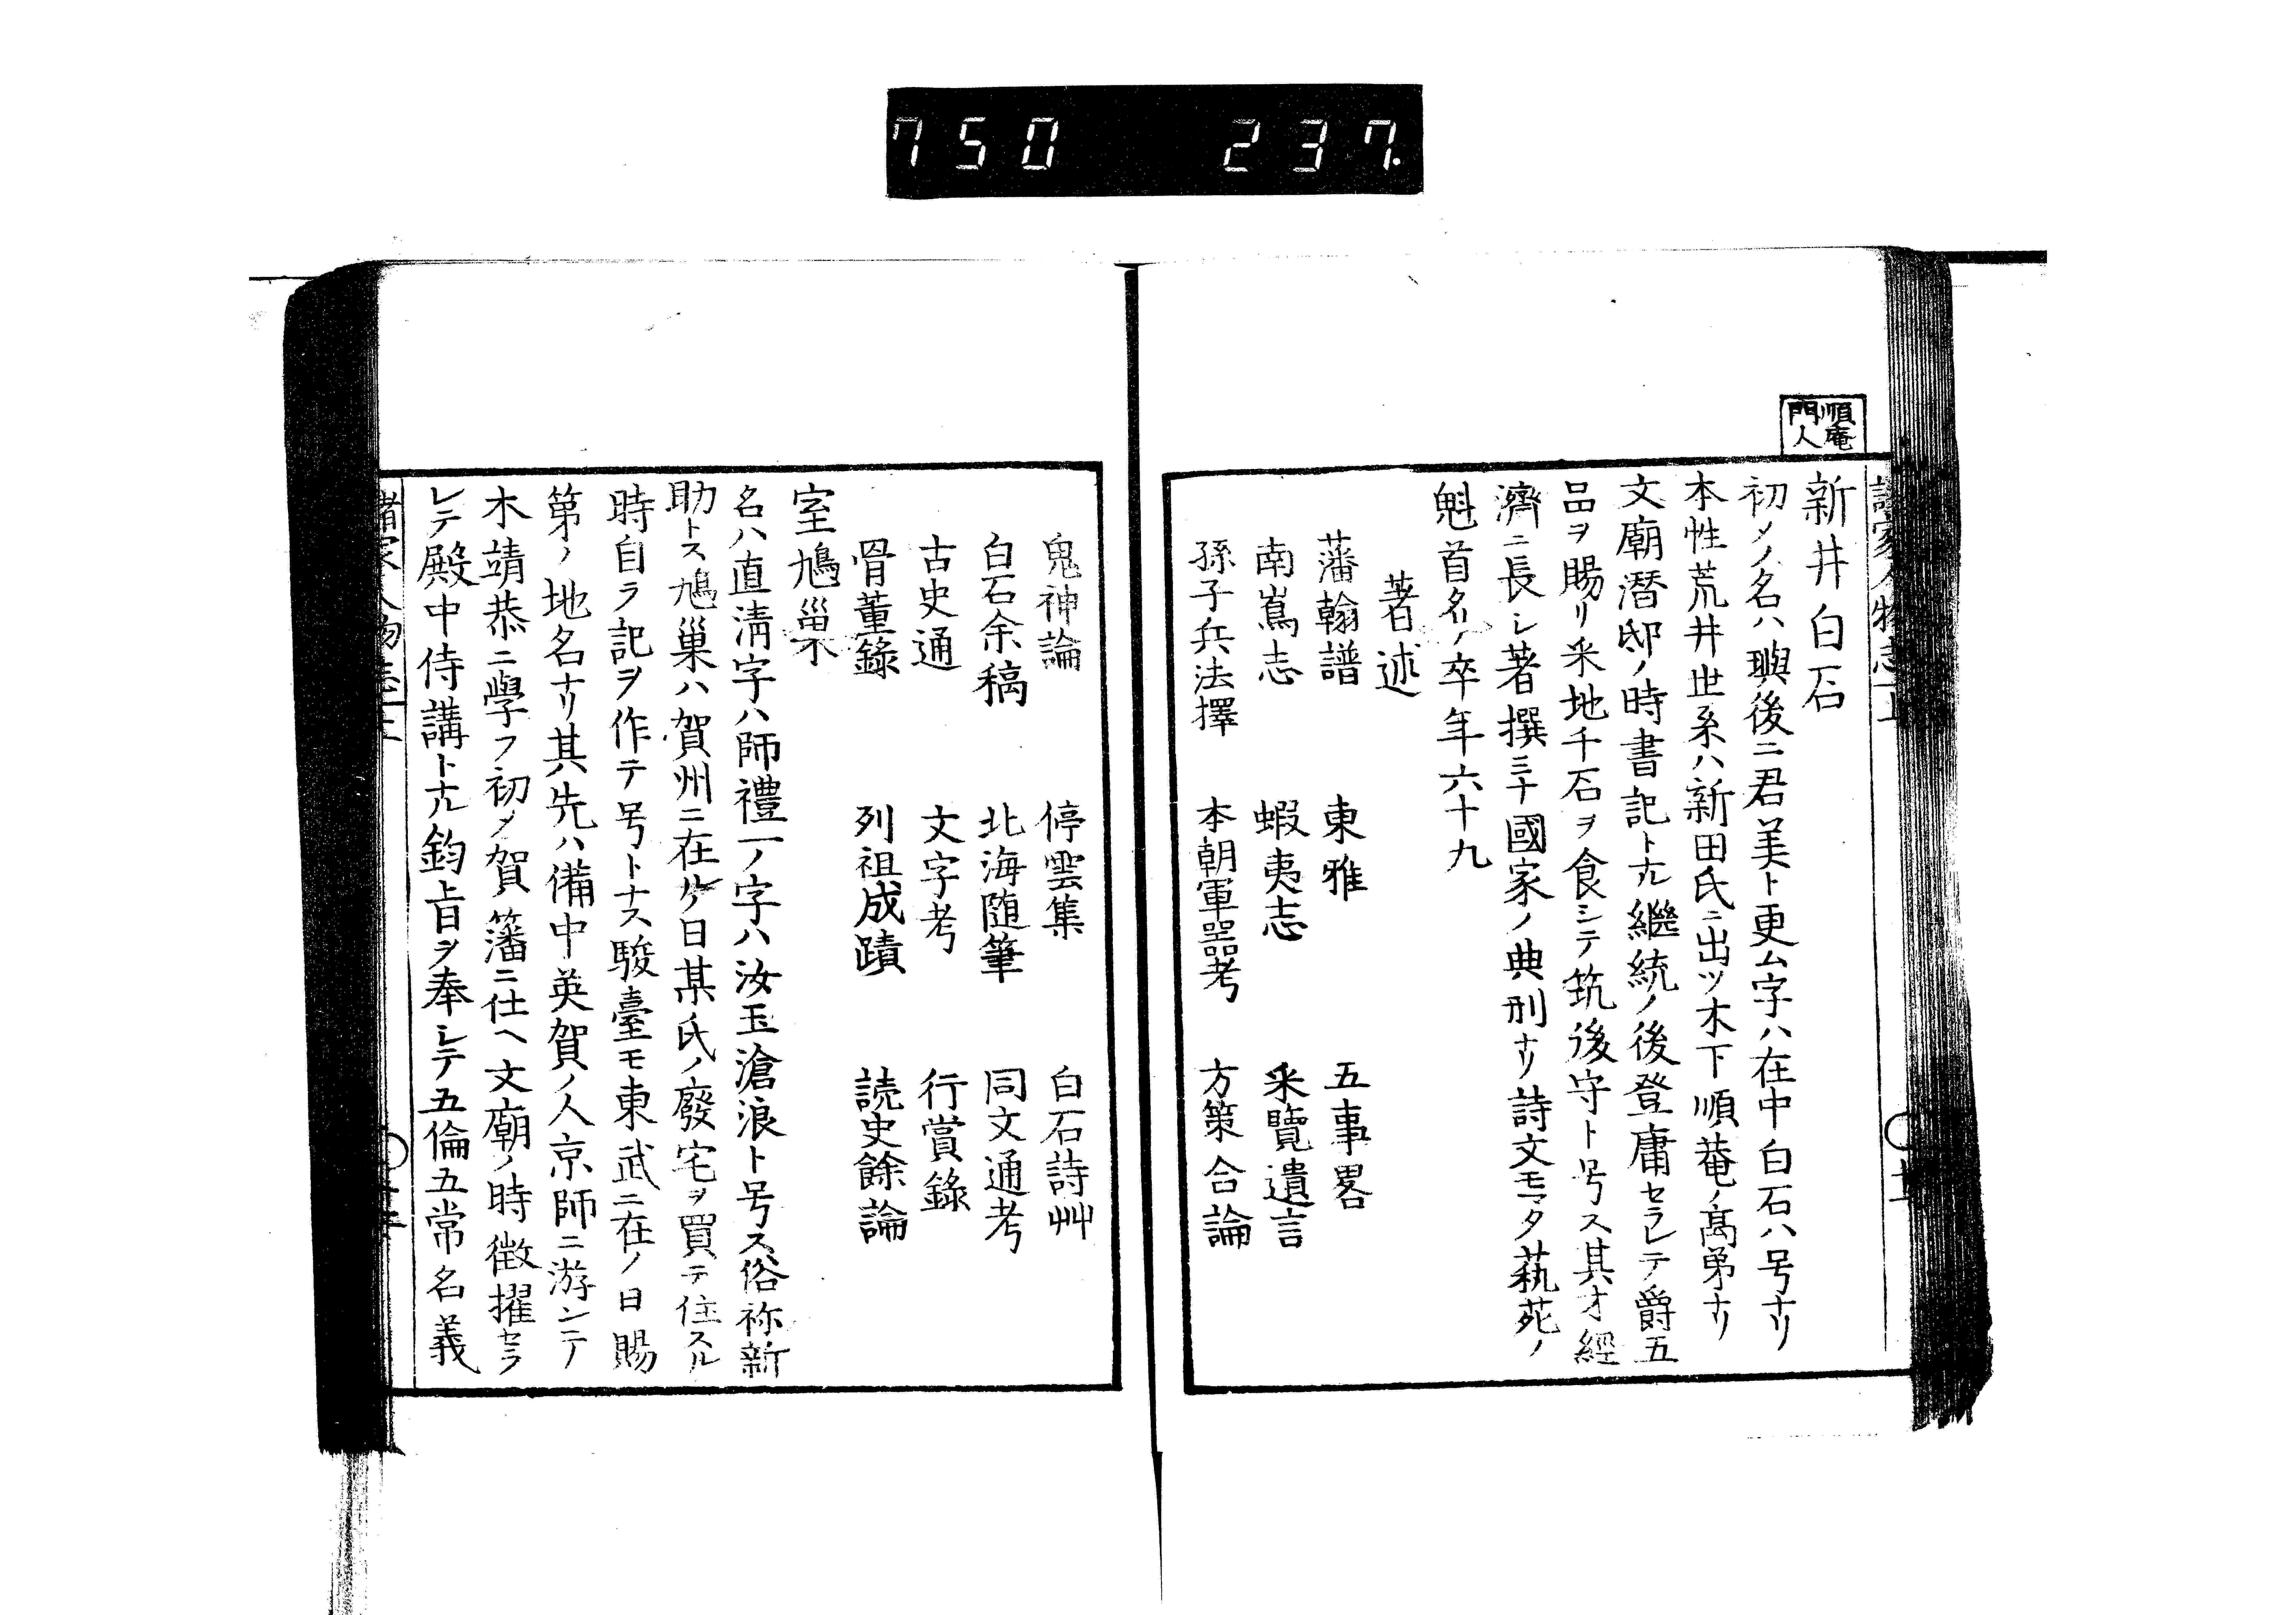 750 237.
順菴
門人
新井白石
初メノ名ハ璵後ニ君美ト更ム字ハ在中白石ハ号ナリ
本性荒井世系ハ新田氏ニ出ツ木下順菴ノ高弟ナリ
文廟潛邸ノ時書記ト尤継統ノ後登庸セラレテ爵五
品ヲ賜リ采地千石ヲ食シテ筑後守ト号ス其才經
濟ニ長レ著撰三十國家ノ典刑ナリ詩文モマタ蓺苑ノ
魁首名ノ卒年六十九
著述
藩翰譜 東雅 五事畧
南嶌志 蝦夷志 采覽遺言
孫子兵法擇 本朝軍噐考 方策合論
鬼神論 停雲集 白石詩艸
白石余稿 北海随筆 同文通考
古史通 文字考 行賞錄
骨董錄 列祖成蹟 読史餘論
室鳩巢
名ハ直淸字ハ師禮一ノ字ハ汝玉滄浪ト号ス俗祢新
助トス鳩巢ハ賀州ニ在ルケ日某氏ノ廢宅ヲ買テ住スル
時自ラ記ヲ作テ号トナス駿臺モ東武ニ在ノ日賜
第ノ地名ナリ其先ハ備中英賀ノ人京師ニ游ンテ
木靖恭ニ學フ初メ賀藩ニ仕ヘ文廟ノ時徵擢セラ
レテ殿中侍講ト尤鈞旨ヲ奉レテ五倫五常名義